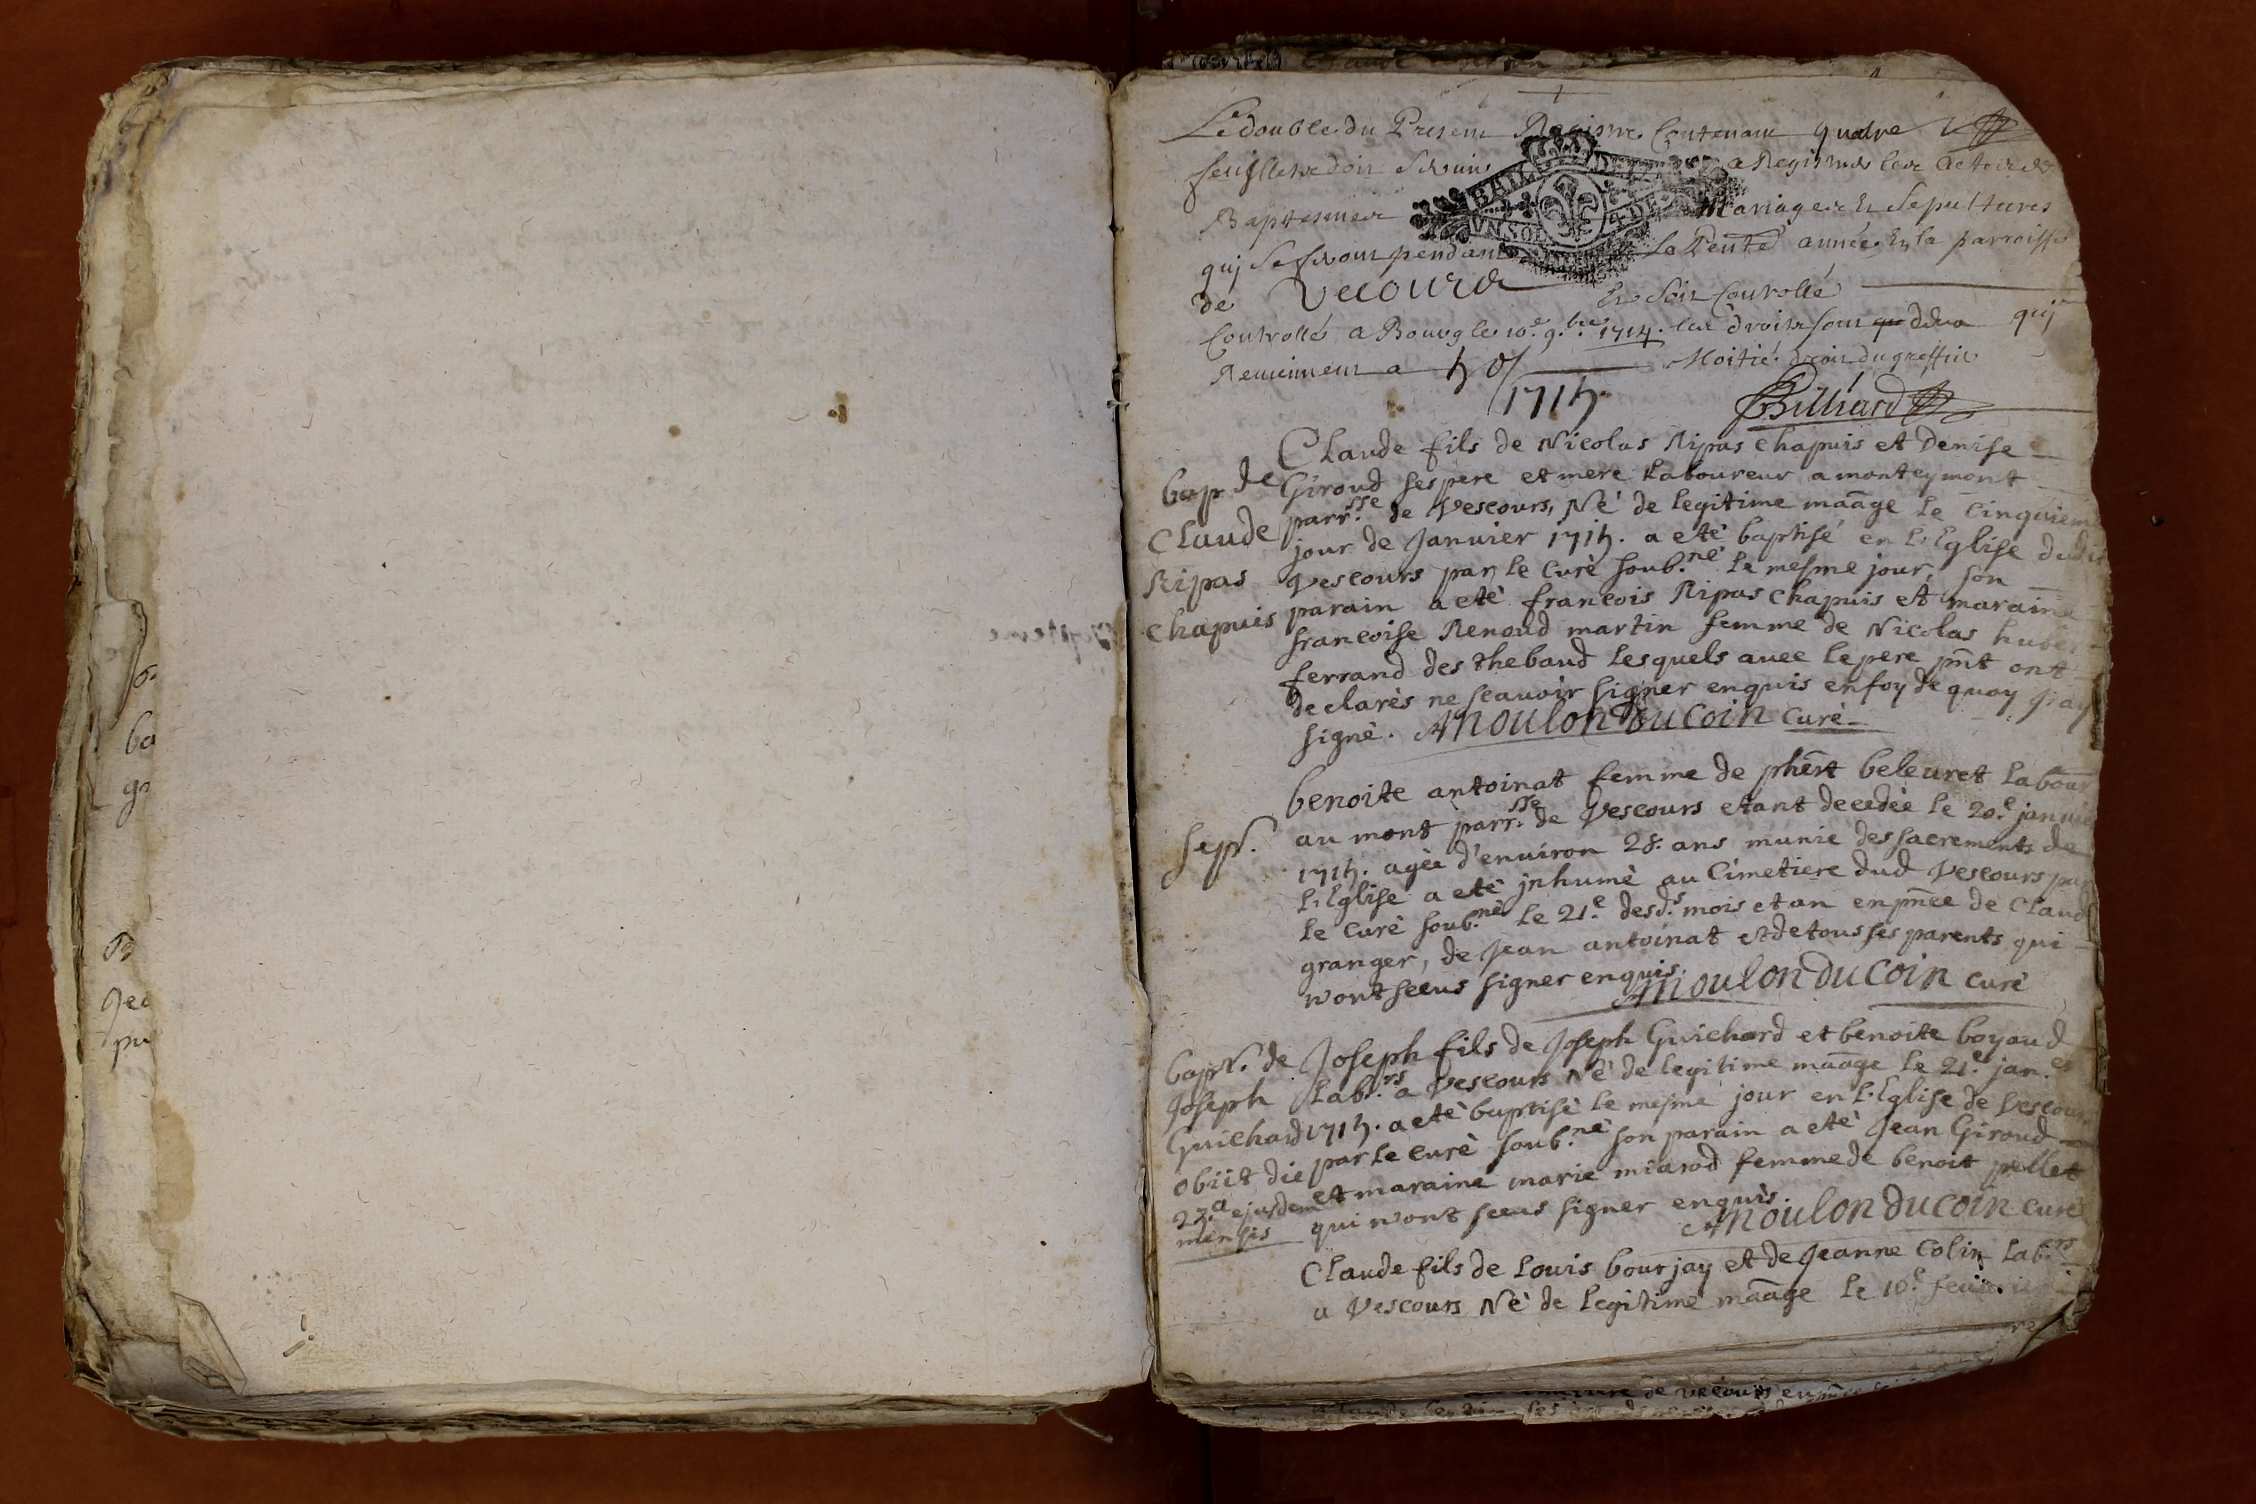 Le double du Present Registre Contenant quatre
feuillets doit servir a Registrer les actes de
Baptesmes Mariages Et Sepultures
BAIL DE
UN SOL 4 DE
qui se feront pendant la Pnte année En la parroisse
de Vecours Et soit Controllé
Controllé a Bourg le 10e 9.bre 1714. les droits sont qui
Reviennent a Moitié droit du greffier
1715.
Billiard
Claude fils de Nicolas Ripas chapuis et Denise
bap de Giroud ses pere et mere Laboureur a monteymont
Claude parr.sse de Vescours, Né de legitime maage le Cinquiem
Ripas jour de Januier 1715. a eté baptisé en l'Eglise dudit
chapuis Vescours par le Curé soub.né le mesme jour, son
parain a eté francois Ripas chapuis et maraine
francoise Renoud martin femme de Nicolas
ferrand des thebaud Lesquels avec le pere pnt ont
declarés ne scauoir signer enquis en foy de quoy J'ay
signé. Moulon Ducoin Curé
benoite antoinat femme de phert beleuret Labour
sep. au mont parr.sse de Vescours etant decedée le 20.e janvie
1715. agée d'enuiron 28. ans munie des sacrements de
L'Eglise a eté jnhumé au Cimetiere dud Vescours par
le Curé soub.né le 21.e desd.s mois et an en pnce de Claude
granger, de Jean antoinat et de tous ses parents qui
n'ont sceus signer enquis. Moulon Ducoin Curé
bapt. de Joseph fils de Joseph Guichard et benoite boyaud
Joseph Lab.rs a Vescours Né de legitime maage le 21.e jan.er
Guichard 1715. a eté baptisé le mesme jour en L'Eglise de Vescours
obiit die par le curé soub.né son parain a eté Jean Giroud
22.a ejusdem et maraine marie miarod femme de benoit pellet
mensis qui n'ont sceus signer enquis. Moulon Ducoin Curé
Claude fils de Louis bourjay et de Jeanne Colin Lab.rs
a Vescours Né de legitime maage le 10.e feurier